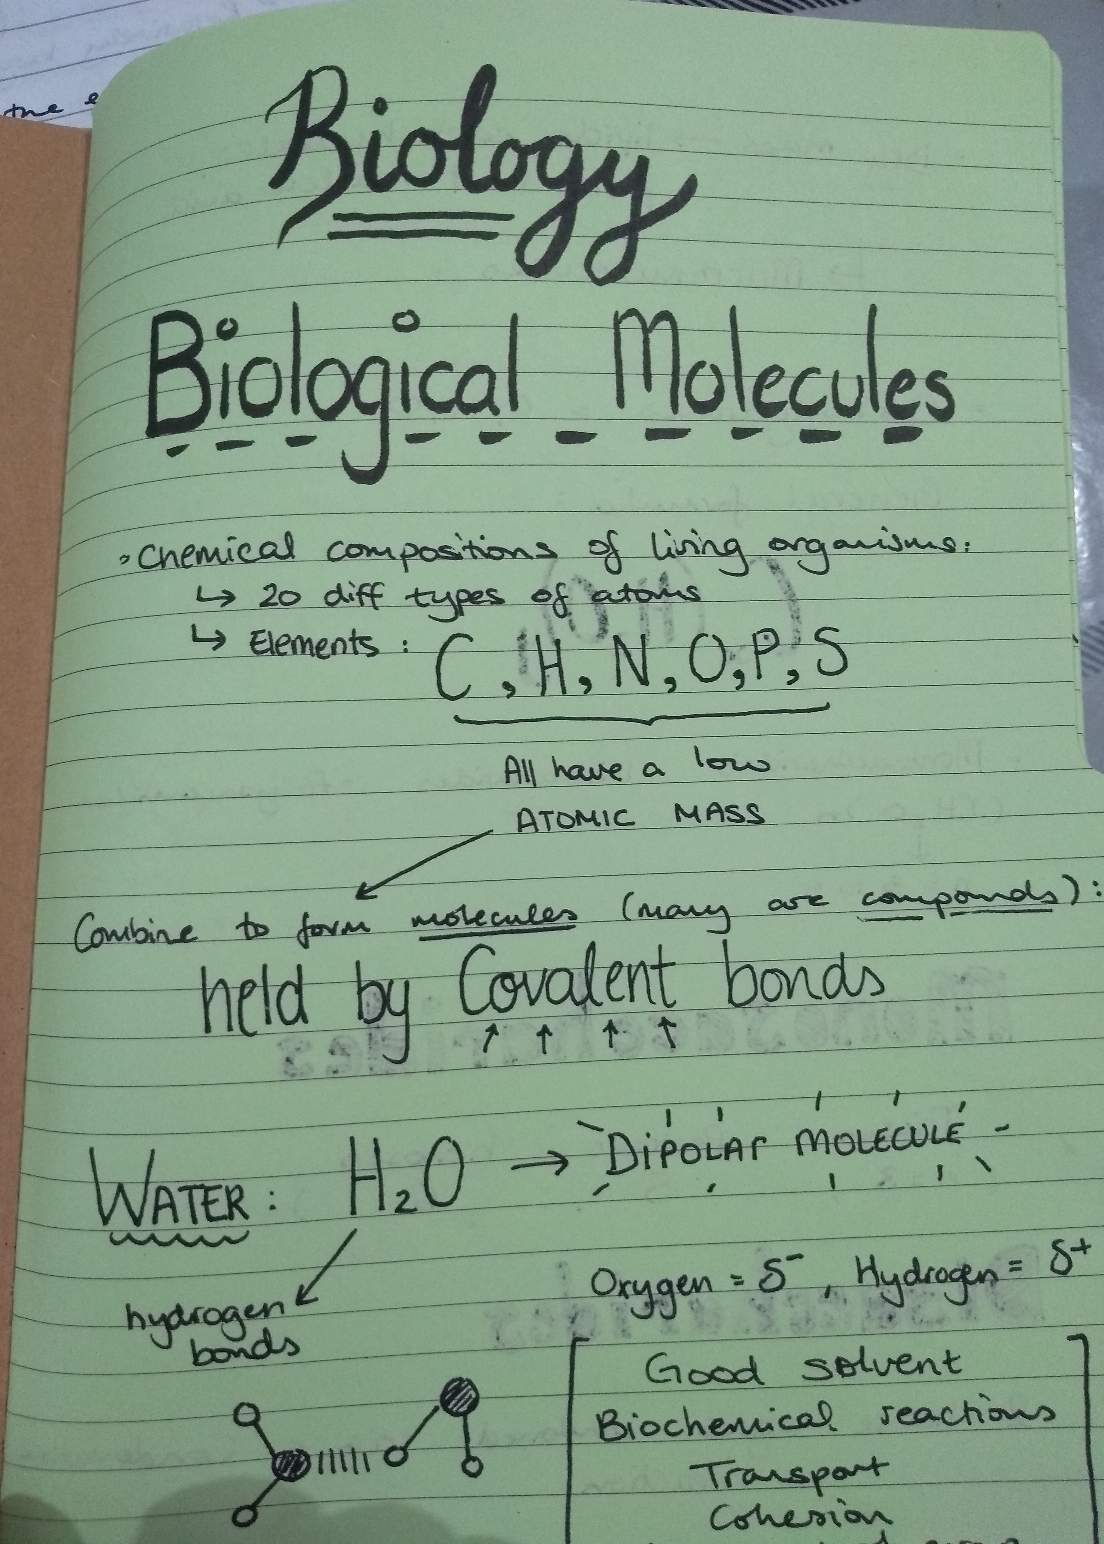 the
Biology
Biological Molecules
Chemical compositions of living organisms:
↳ 20 diff types of atoms
↳ Elements : C, H, N, O, P, S
All have a low
ATOMIC MASS
Combine to form molecules (many are compounds):
held by Covalent bonds
WATER: H₂O → DIPOLAR MOLECULE
Oxygen = δ⁻, Hydrogen = δ⁺
hydrogen
bonds
Good solvent
Biochemical reactions
Transport
Cohesion